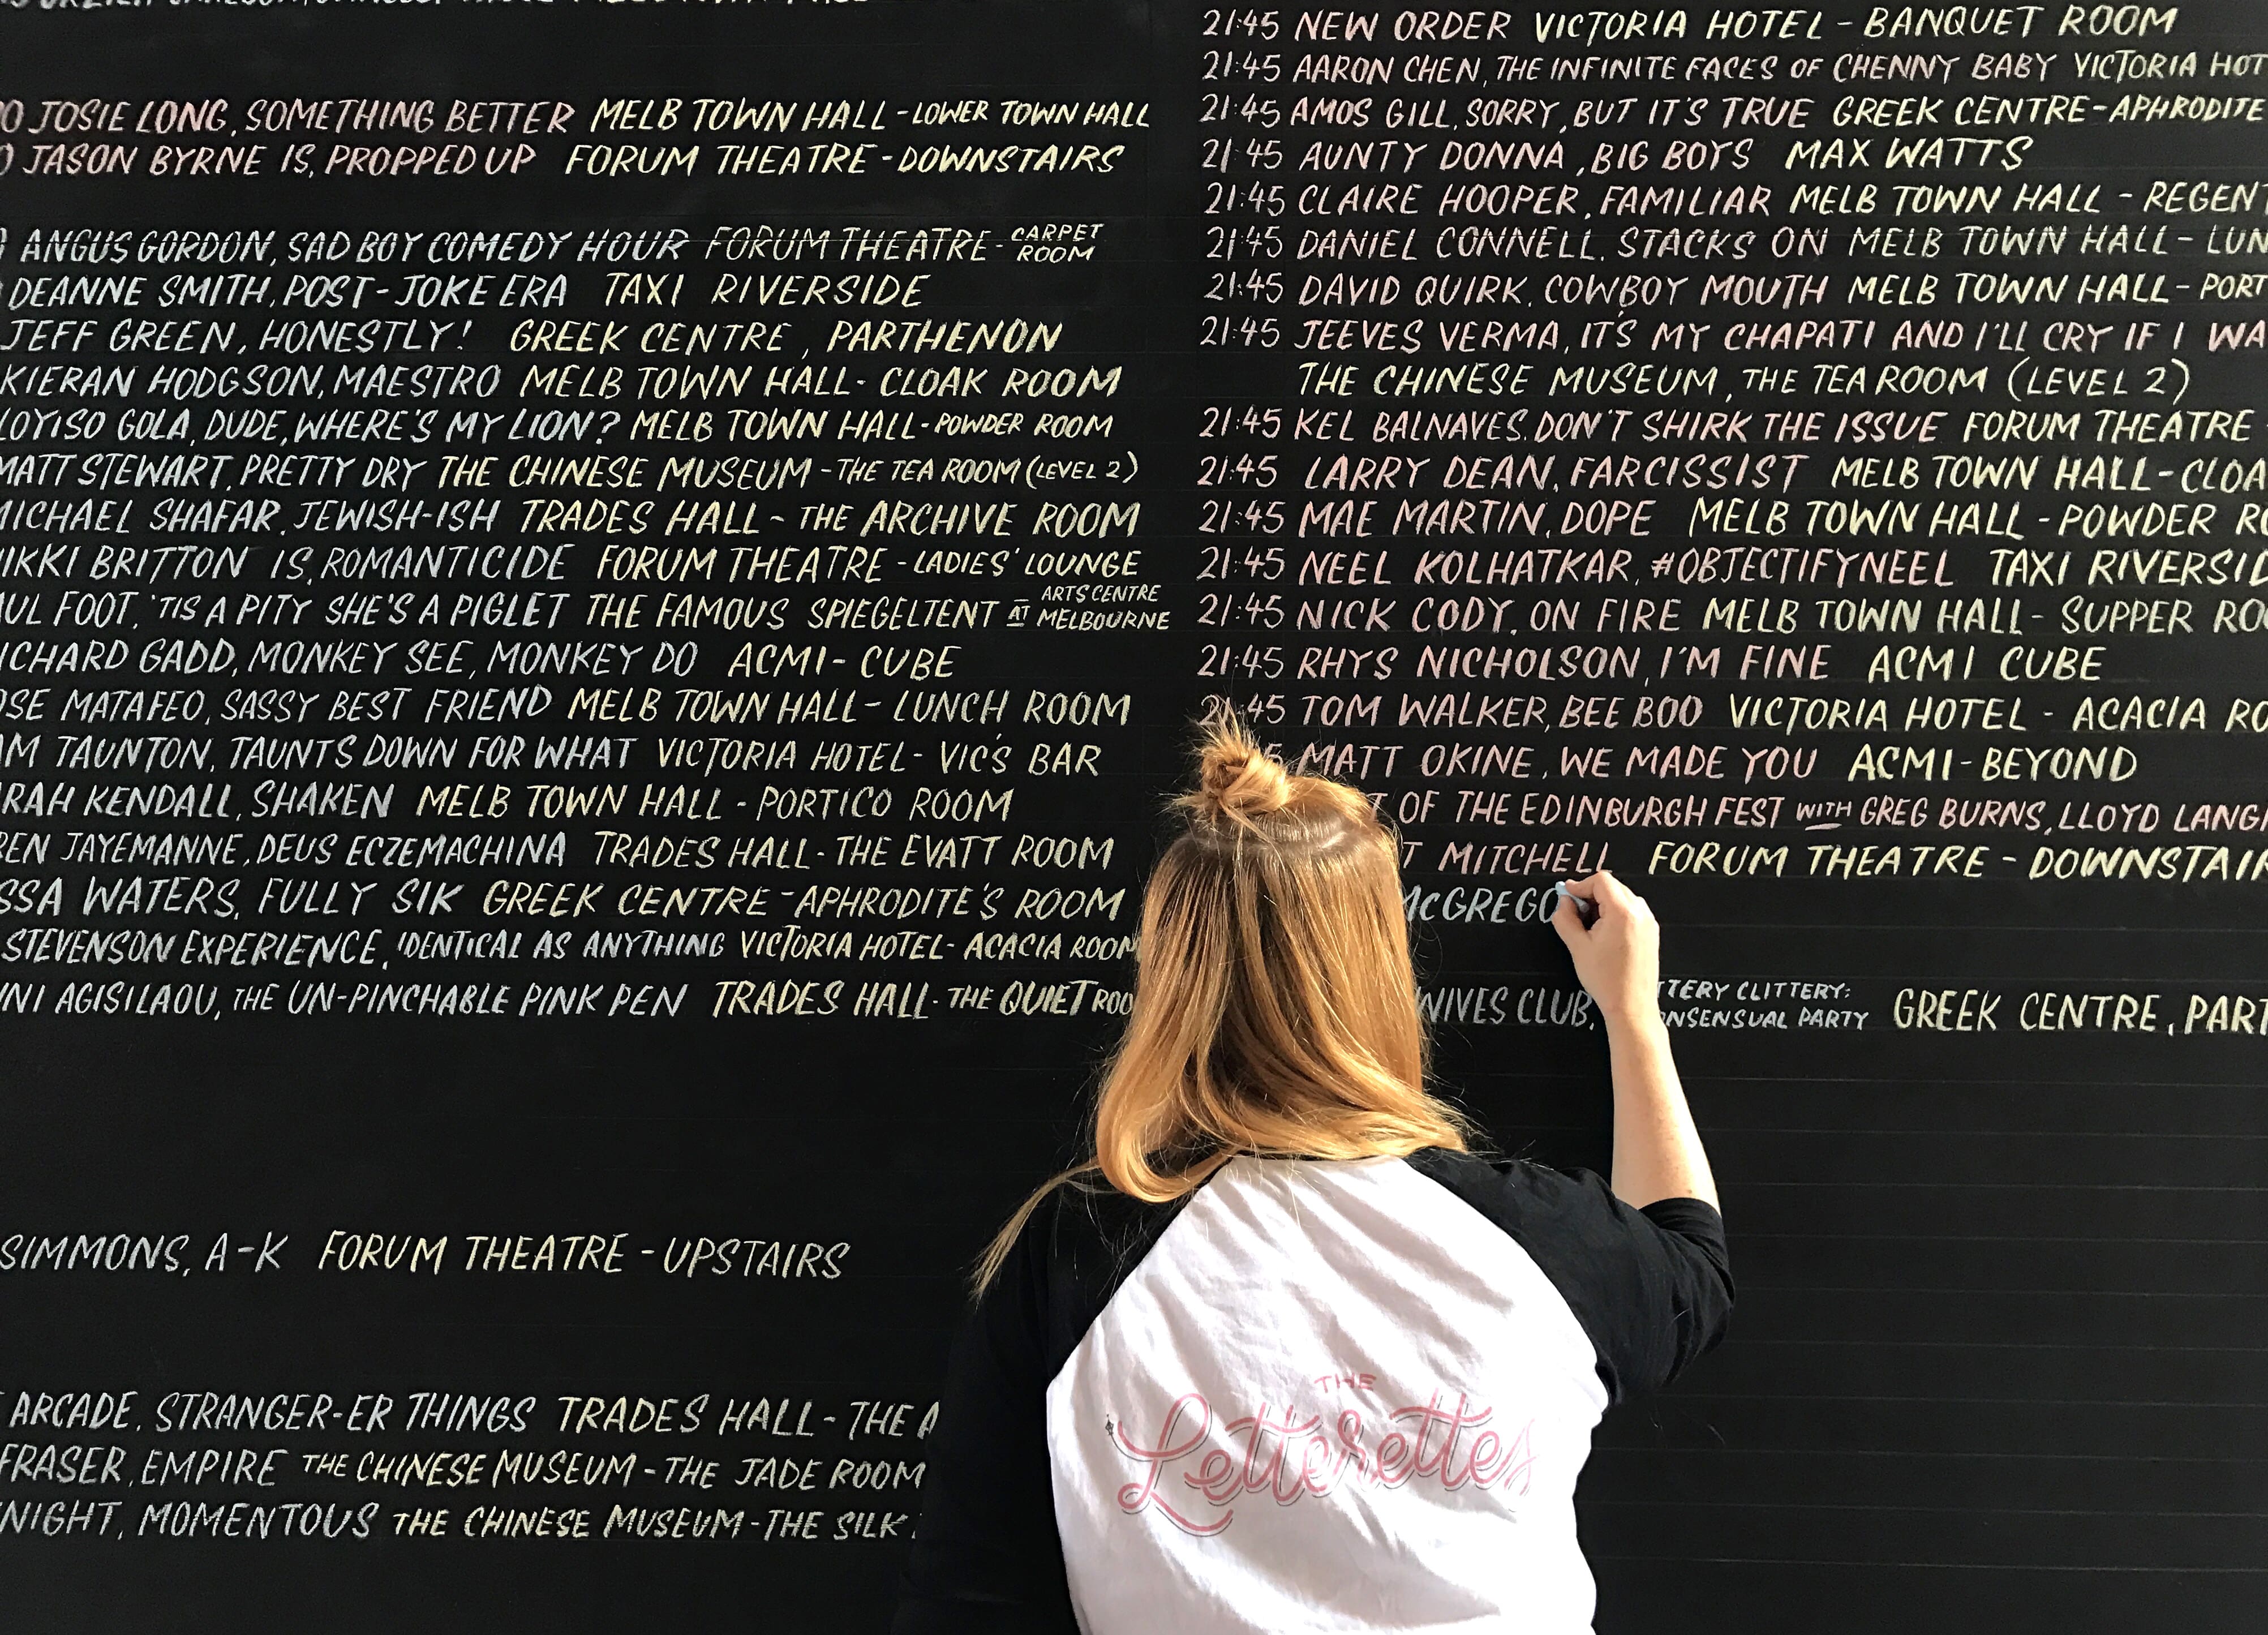 JOSIE LONG, SOMETHING BETTER MELB TOWN HALL - LOWER TOWN HALL
JASON BYRNE IS, PROPPED UP FORUM THEATRE - DOWNSTAIRS
ANGUS GORDON, SAD BOY COMEDY HOUR FORUM THEATRE - CARPET ROOM
DEANNE SMITH, POST-JOKE ERA TAXI RIVERSIDE
JEFF GREEN, HONESTLY! GREEK CENTRE, PARTHENON
KIERAN HODGSON, MAESTRO MELB TOWN HALL - CLOAK ROOM
LOYISO GOLA, DUDE, WHERE'S MY LION? MELB TOWN HALL - POWDER ROOM
MATT STEWART, PRETTY DRY THE CHINESE MUSEUM - THE TEA ROOM (LEVEL 2)
MICHAEL SHAFAR, JEWISH-ISH TRADES HALL - THE ARCHIVE ROOM
IKKI BRITTON IS, ROMANTICIDE FORUM THEATRE - LADIES' LOUNGE
UL FOOT, 'TIS A PITY SHE'S A PIGLET THE FAMOUS SPIEGELTENT - AT ARTS CENTRE MELBOURNE
ICHARD GADD, MONKEY SEE, MONKEY DO ACMI - CUBE
OSE MATAFEO, SASSY BEST FRIEND MELB TOWN HALL - LUNCH ROOM
AM TAUNTON, TAUNTS DOWN FOR WHAT VICTORIA HOTEL - VIC'S BAR
RAH KENDALL, SHAKEN MELB TOWN HALL - PORTICO ROOM
REN JAYEMANNE, DEUS ECZEMACHINA TRADES HALL - THE EVATT ROOM
SSA WATERS, FULLY SIK GREEK CENTRE - APHRODITE'S ROOM
STEVENSON EXPERIENCE, IDENTICAL AS ANYTHING VICTORIA HOTEL - ACACIA ROOM
NI AGISILAOU, THE UN-PINCHABLE PINK PEN TRADES HALL - THE QUIET ROO
SIMMONS, A-K FORUM THEATRE - UPSTAIRS
ARCADE, STRANGER-ER THINGS TRADES HALL - THE A
FRASER, EMPIRE THE CHINESE MUSEUM - THE JADE ROOM
NIGHT, MOMENTOUS THE CHINESE MUSEUM - THE SILK
21:45 NEW ORDER VICTORIA HOTEL - BANQUET ROOM
21:45 AARON CHEN, THE INFINITE FACES OF CHENNY BABY VICTORIA HOT
21:45 AMOS GILL, SORRY, BUT IT'S TRUE GREEK CENTRE - APHRODITE
21:45 AUNTY DONNA, BIG BOYS MAX WATTS
21:45 CLAIRE HOOPER, FAMILIAR MELB TOWN HALL - REGENT
21:45 DANIEL CONNELL, STACKS ON MELB TOWN HALL - LUN
21:45 DAVID QUIRK, COWBOY MOUTH MELB TOWN HALL - PORT
21:45 JEEVES VERMA, IT'S MY CHAPATI AND I'LL CRY IF I WA
THE CHINESE MUSEUM, THE TEA ROOM (LEVEL 2)
21:45 KEL BALNAVES, DON'T SHIRK THE ISSUE FORUM THEATRE
21:45 LARRY DEAN, FARCISSIST MELB TOWN HALL - CLOA
21:45 MAE MARTIN, DOPE MELB TOWN HALL - POWDER R
21:45 NEEL KOLHATKAR, #OBJECTIFYNEEL TAXI RIVERSID
21:45 NICK CODY, ON FIRE MELB TOWN HALL - SUPPER RO
21:45 RHYS NICHOLSON, I'M FINE ACMI CUBE
21:45 TOM WALKER, BEE BOO VICTORIA HOTEL - ACACIA RO
MATT OKINE, WE MADE YOU ACMI - BEYOND
T OF THE EDINBURGH FEST WITH GREG BURNS, LLOYD LANG
T MITCHELL FORUM THEATRE - DOWNSTAIR
MCGREGO
NIVES CLUB, TTERY CLITTERY: NSENSUAL PARTY GREEK CENTRE, PART
THE
Letterettes